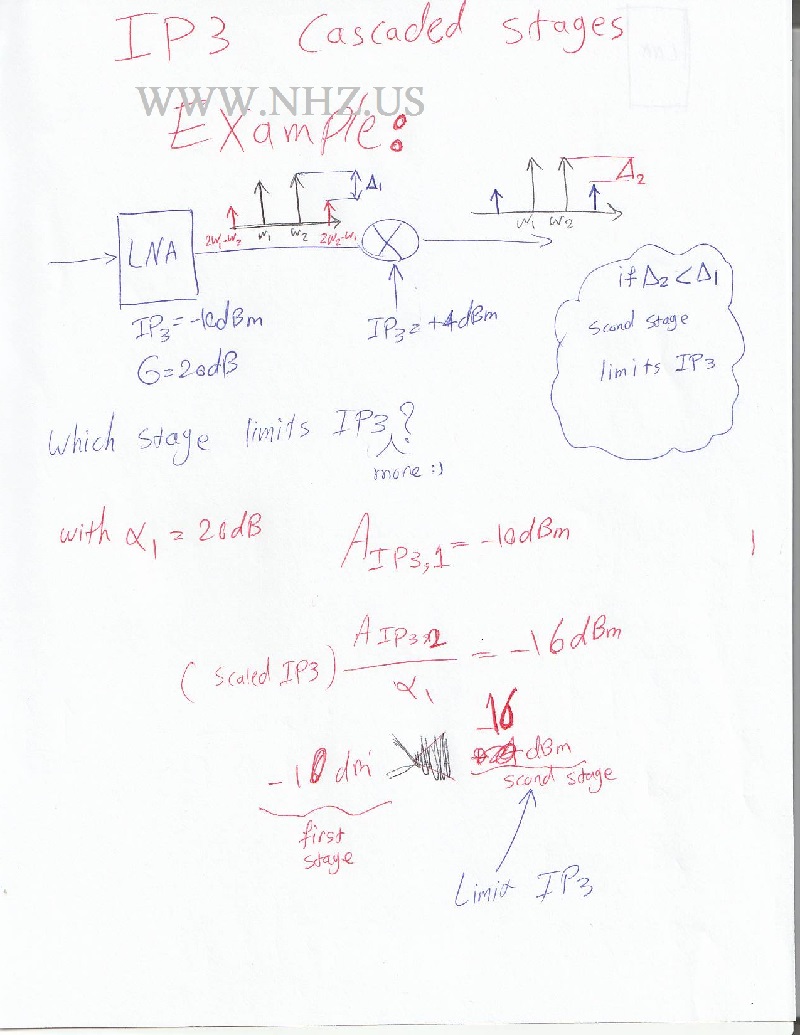 IP3 Cascaded Stages
WWW.NHZ.US
Example:
Δ1
Δ2
LNA
2W1-W2 W1 W2 2W2-W1
W1 W2
IP3=-10dBm
G=20dB
IP3=+4dBm
if Δ2<Δ1
Scond stage
limits IP3
Which stage limits IP3?
more :)
with α1 = 20dB
AIP3,1=-10dBm
(Scaled IP3) AIP3,2 = -16dBm
α1
-16
-10 dm
dBm
first
stage
scond stage
Limit IP3